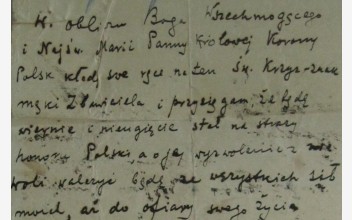 W obliczu Boga Wszechmogącego
i Najśw. Marii Panny Królowej Korony
Polsk kładę swe ręce na ten Św. Krzyż-znak
męki Zbawiciela i przysięgam, że będę
wiernie i nieugięcie stał na straży
honoru Polski, a o jej wyzwolenie z nie
woli walczyć będę ze wszystkich sił
moich, aż do ofiary swego życia